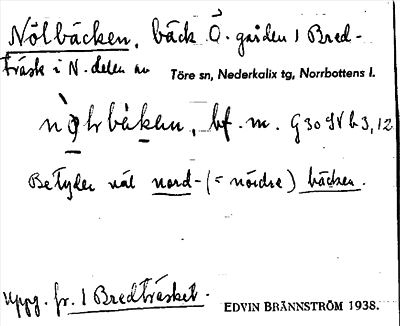 Nölbäcken, bäck Ö. gården 1 Bred-
träsk i N. delen av Töre sn, Nederkalix tg, Norrbottens l.
bf. m. G 30 SV b 3, 12
Betyder väl nord- (= nördre) bäcken.
Uppg. fr. 1 Bredträsket.
EDVIN BRÄNNSTRÖM 1938.